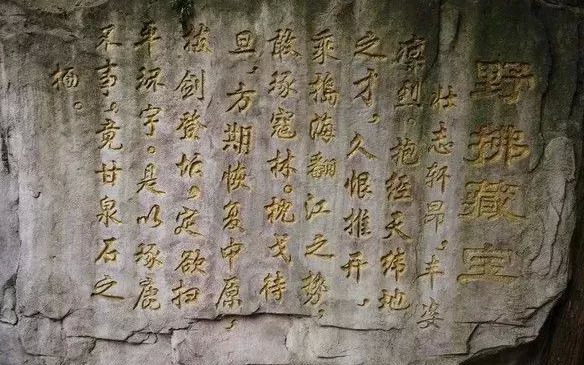 野拂藏宝
壮志轩昂,丰姿
凛烈。抱经天纬地
之才,久恨推开,
乘捣海翻江之势,
敢琢寇林。枕戈待
旦,方期恢复中原,
剑登坛。定欲扫
平琢宇。是以琢鹿
不事,竟甘泉石之
栖。